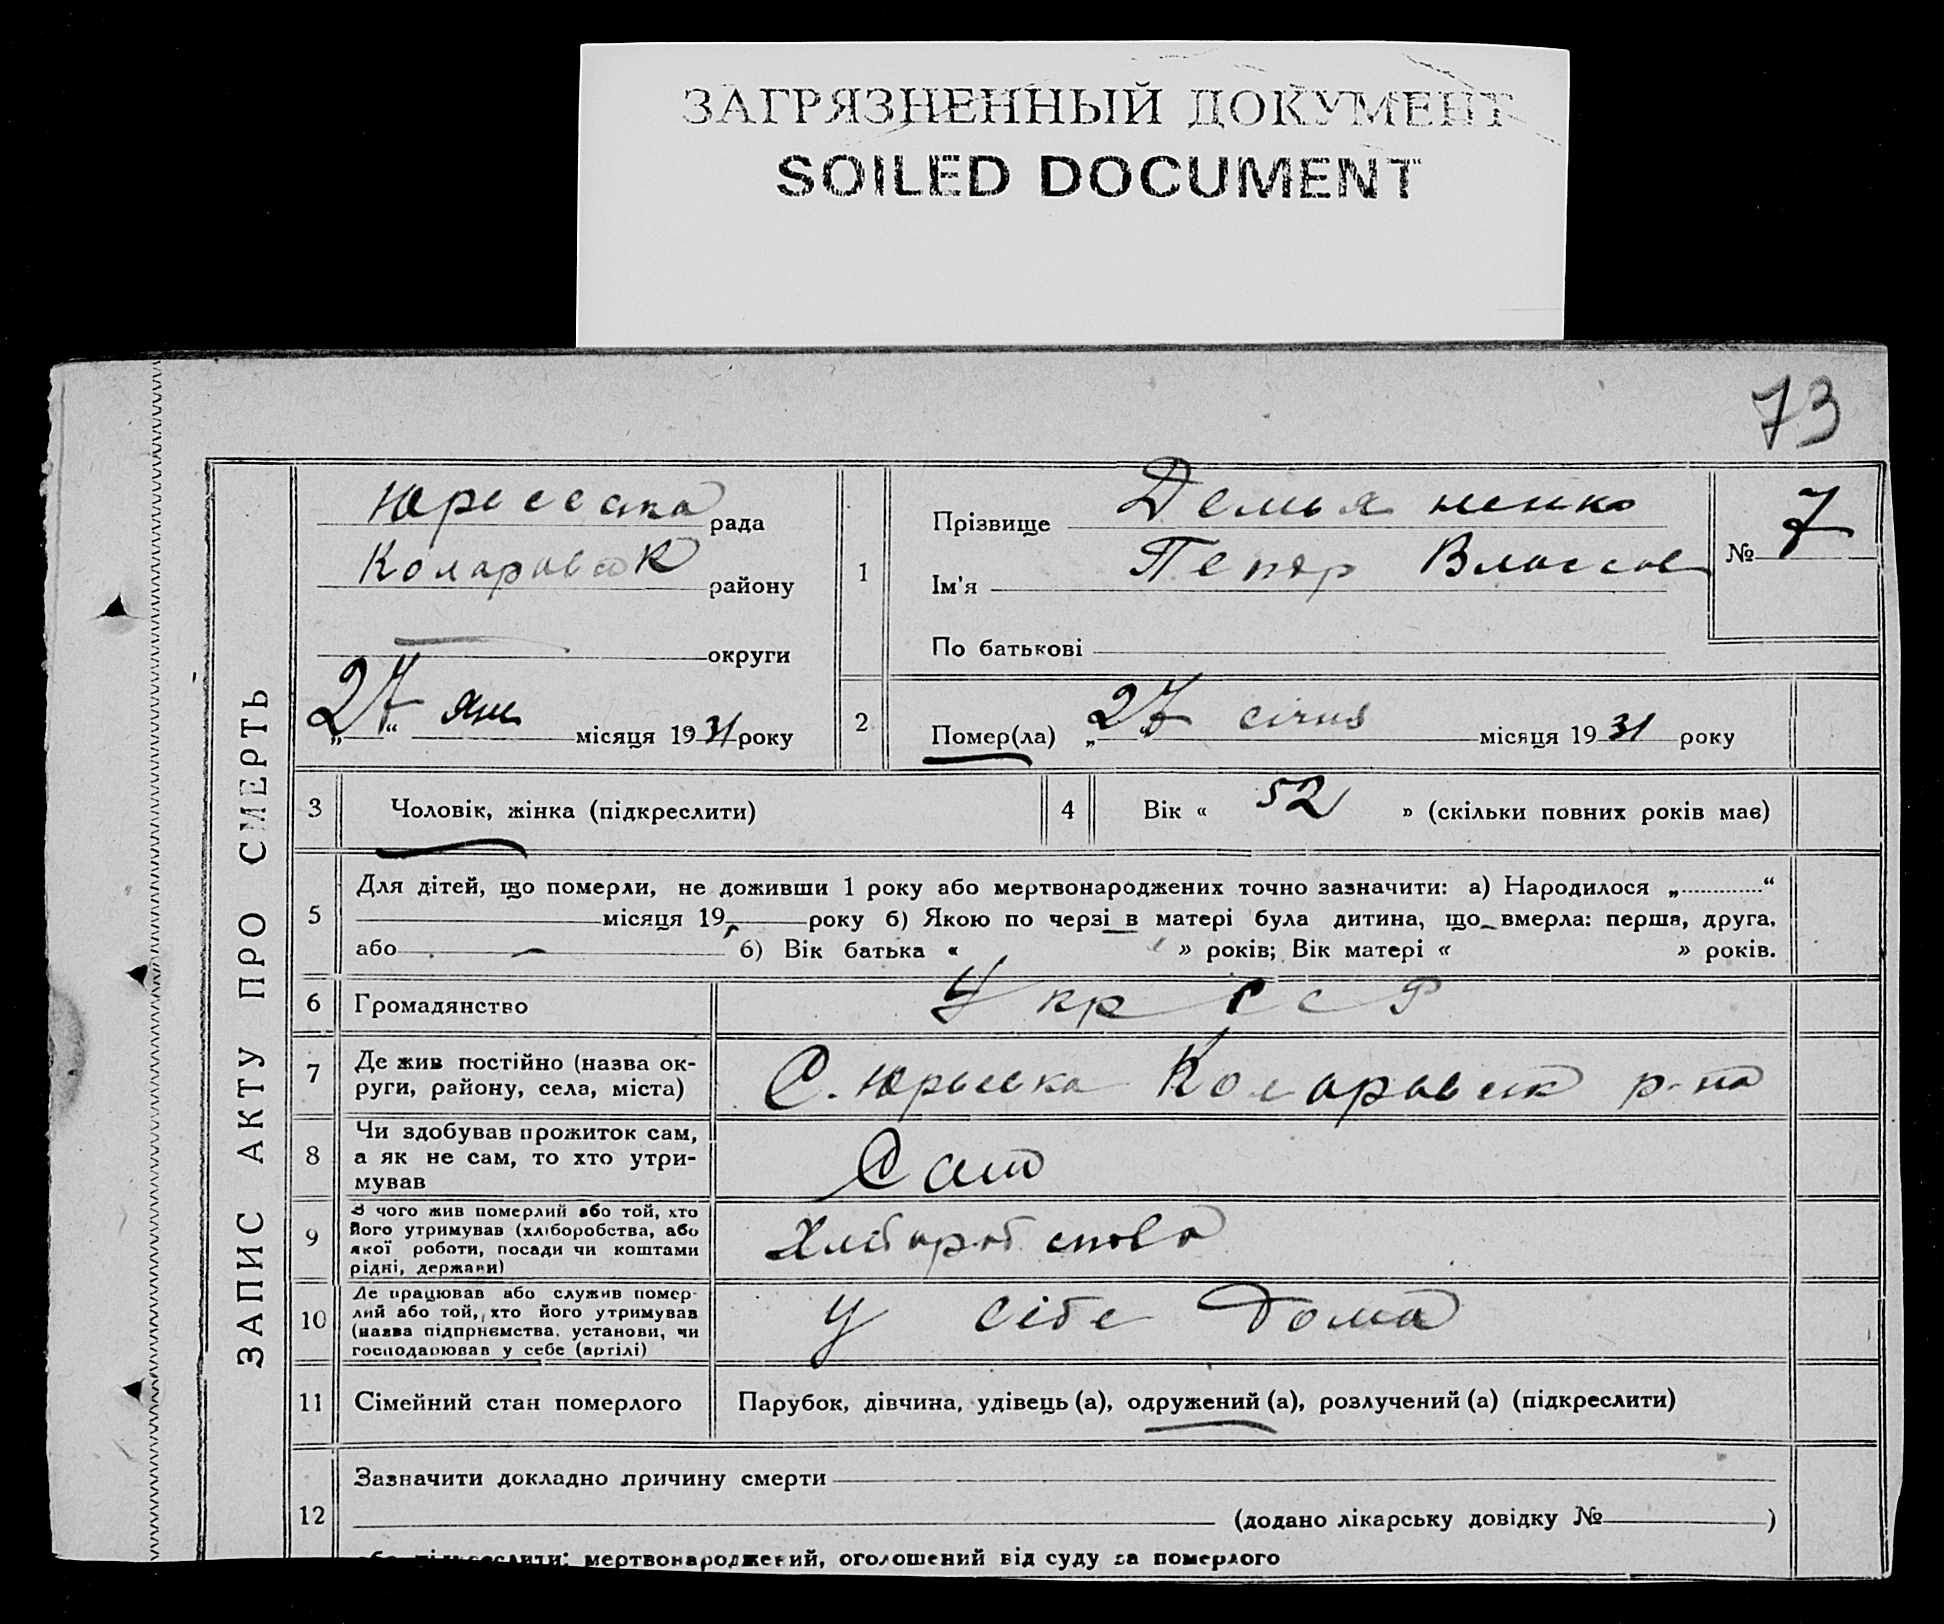 ЗАГРЯЗНЕННЫЙ ДОКУМЕНТ
SOILED DOCUMENT
73
ЗАПИС АКТУ ПРО СМЕРТЬ
рада
района
району
округи
„27“ янв місяця 1931 року
1
Прізвище Демьяненко
Ім'я Петр Власов
По батькові
№ 7
2
Помер(ла) „27“ січня місяця 1931 року
3 Чоловік, жінка (підкреслити)
4 Вік « 52 » (скільки повних років має)
5
Для дітей, що померли, не доживши 1 року або мертвонароджених точно зазначити: а) Народилося „ “
місяця 19 року б) Якою по черзі в матері була дитина, що вмерла: перша, друга,
або б) Вік батька « » років; Вік матері « » років.
6 Громадянство Укр ССР
7 Де жив постійно (назва ок-
руги, району, села, міста)
С. Юрьевка Коларовск р-на
8 Чи здобував прожиток сам,
а як не сам, то хто утри-
мував
Сам
9 З чого жив померлий або той, хто
його утримував (хліборобства, або
якої роботи, посади чи коштами
рідні, держави)
Хліборобство
10 Де працював або служив помер-
лий або той, хто його утримував
(назва підприємства, установи, чи
господарював у себе (артілі)
У сібе дома
11 Сімейний стан померлого Парубок, дівчина, удівець (а), одружений (а), розлучений (а) (підкреслити)
12
Зазначити докладно причину смерти
(додано лікарську довідку № )
або підкреслити: мертвонароджений, оголошений від суду за померлого